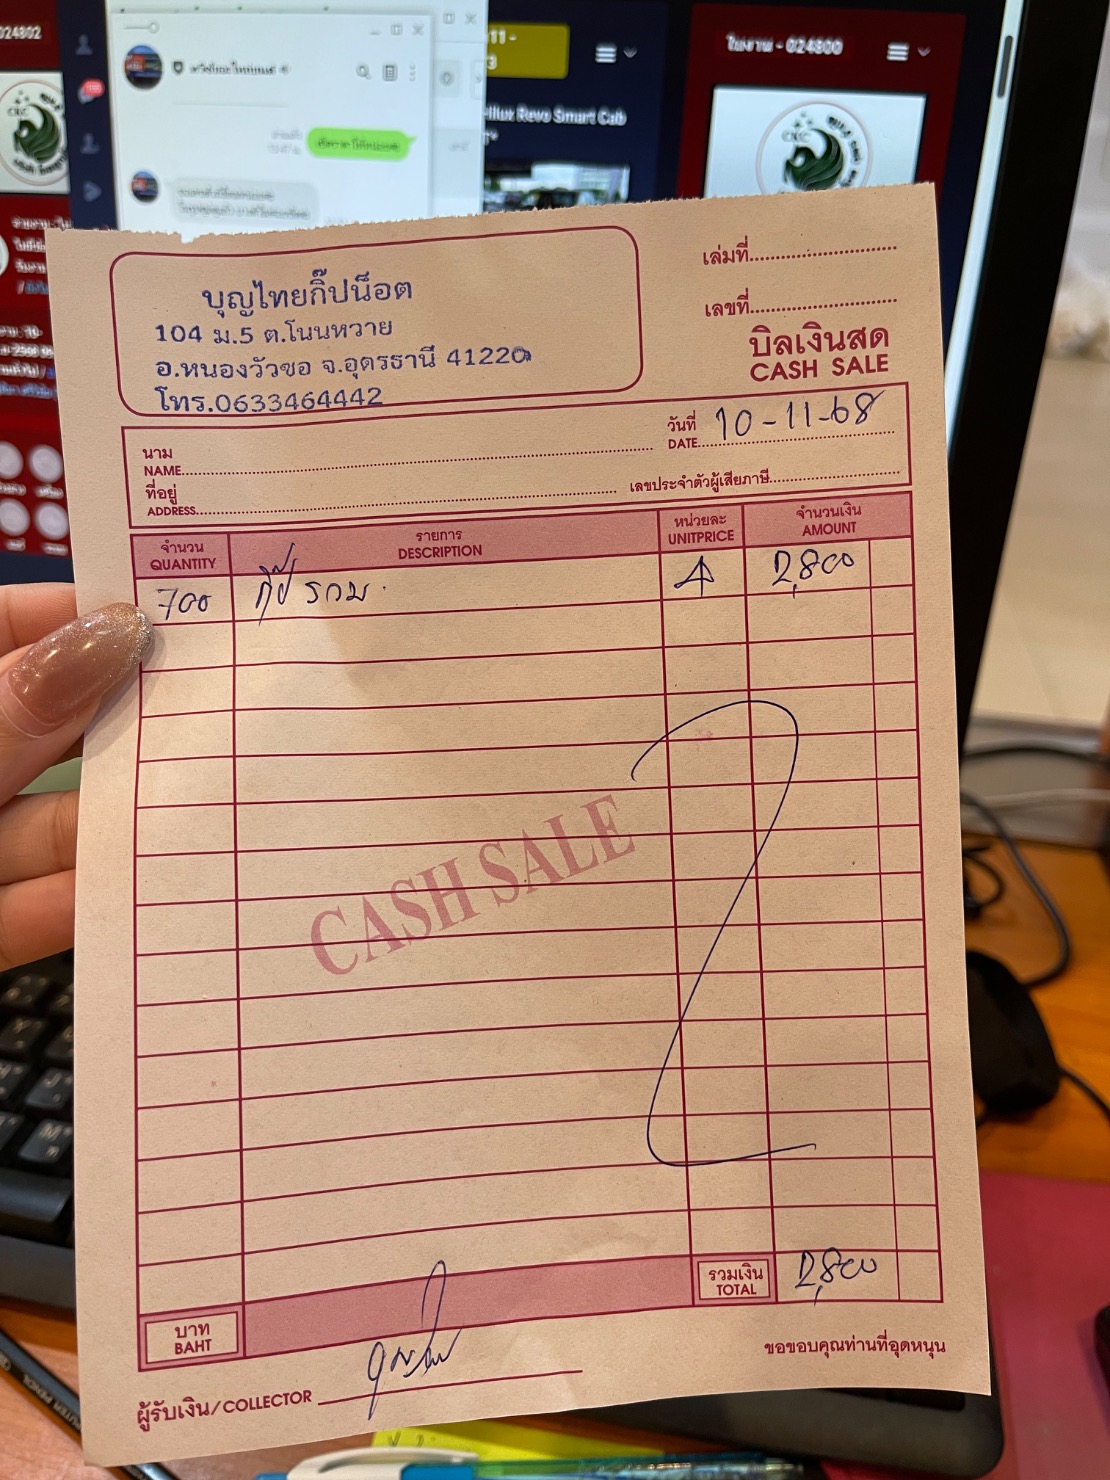 024802
11 -
3
ใบงาน - 024800
Hilux Revo Smart Cab
CKC
เล่มที่
เลขที่
บุญไทยกิ๊ปน็อต
104 ม.5 ต.โนนหวาย
อ.หนองวัวซอ จ.อุดรธานี 41220
โทร.0633464442
บิลเงินสด
CASH SALE
นาม
NAME
วันที่
DATE 10-11-68
ที่อยู่
ADDRESS
เลขประจำตัวผู้เสียภาษี
จำนวน QUANTITY รายการ DESCRIPTION หน่วยละ UNITPRICE จำนวนเงิน AMOUNT
700 กิ๊ป รวม 4 2,800
CASH SALE
รวมเงิน TOTAL 2,800
บาท
BAHT
ขอขอบคุณท่านที่อุดหนุน
ผู้รับเงิน/COLLECTOR